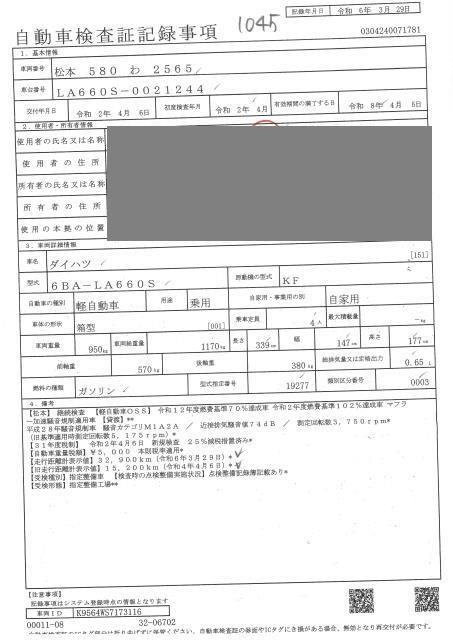 1045
記録年月日 令和 6年 3月 29日
自動車検査証記録事項
0304240071781
1. 基本情報
車両番号 松本 580 わ 2565
車台番号 LA660S-0021244
交付年月日 令和 2年 4月 6日 初度検査年月 令和 2年 4月 有効期間の満了する日 令和 8年 4月 5日
2. 使用者・所有者情報
使用者の氏名又は名称
使用者の住所
所有者の氏名又は名称
所有者の住所
使用の本拠の位置
3. 車両詳細情報
車名 ダイハツ [151]
型式 6BA-LA660S 原動機の型式 KF
自動車の種別 軽自動車 用途 乗用 自家用・事業用の別 自家用
車体の形状 箱型 [001] 乗車定員 4人 最大積載量 -kg
車両重量 950kg 車両総重量 1170kg 長さ 339cm 幅 147cm 高さ 177cm
前軸重 570kg 後軸重 380kg 総排気量又は定格出力 0.65 L
燃料の種類 ガソリン 型式指定番号 19277 類別区分番号 0003
4. 備考
【松本】 継続検査 【軽自動車OSS】 令和12年度燃費基準70%達成車 令和2年度燃費基準102%達成車 マフラ
ー加速騒音規制適用車 【貸渡】**
平成28年騒音規制車 騒音カテゴリM1A2A ／ 近接排気騒音値74dB ／ 測定回転数3,750rpm*
(旧基準適用時測定回転数5,175rpm)*
【31年度税制】 令和2年4月6日 新規検査 25%減税措置済み*
【自動車重量税額】¥5,000 本則税率適用*
【走行距離計表示値】32,900km(令和6年3月29日)*
【旧走行距離計表示値】15,200km(令和4年4月6日)*
【受検種別】指定整備車 【検査時の点検整備実施状況】点検整備記録簿記載あり*
【受検形態】指定整備工場**
【注意事項】
記録事項はシステム登録時点の情報となります
車両ID K9564WS7173116
00011-08 32-06702